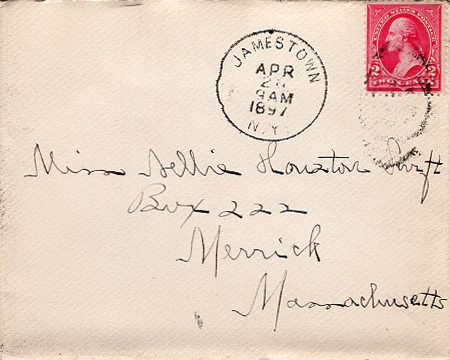 JAMESTOWN
APR
9AM
1897
N.Y.
UNITED STATES POSTAGE
2 2
TWO CENTS
Miss Nellie Houston Swift
Box 222
Merrick
Massachusetts